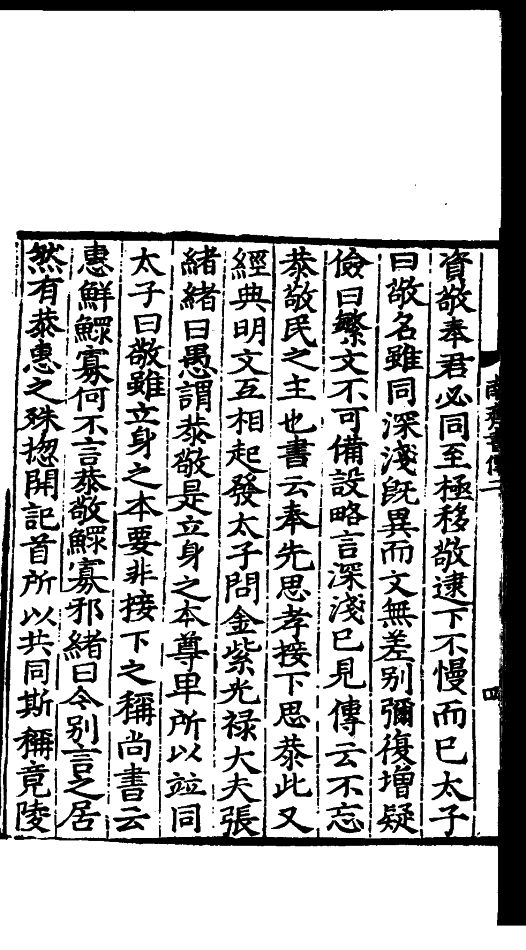 南齊書傳二
四
資敬奉君必同至極移敬逮下不慢而已太子
曰敬名雖同深淺旣異而文無差别彌復增疑
儉曰繁文不可備設略言深淺已見傳云不忘
恭敬民之主也書云奉先思孝接下思恭此又
經典明文互相起發太子問金紫光禄大夫張
緒緒曰愚謂恭敬是立身之本尊卑所以竝同
太子曰敬雖立身之本要非接下之稱尚書云
惠鮮鰥寡何不言恭敬鰥寡邪緒曰今别言之居
然有恭惠之殊揔開記首所以共同斯稱竟陵